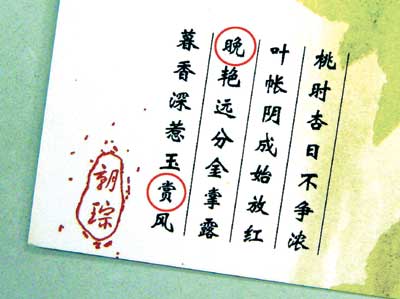 桃时杏日不争浓
叶帐阴成始放红
晚艳远分金掌露
暮香深惹玉赏风
朝琮